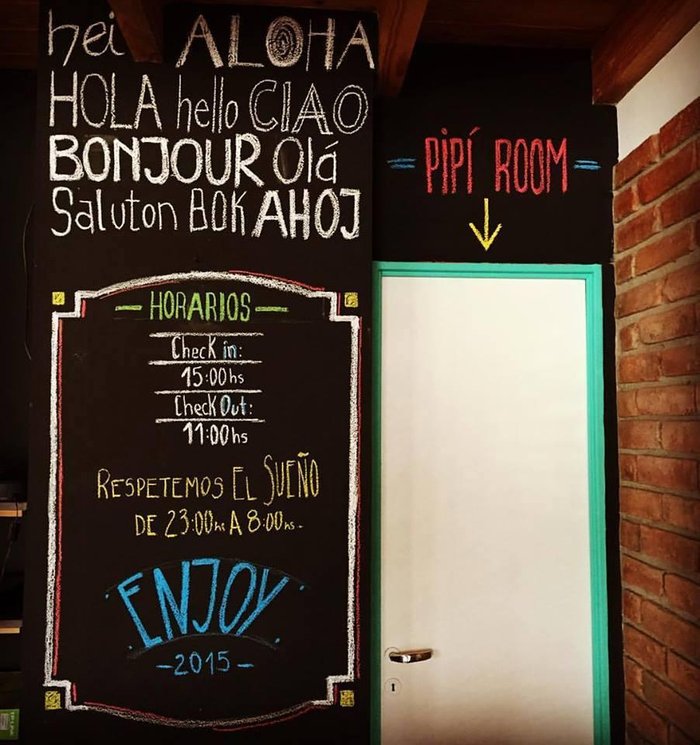 hei ALOHA
HOLA hello CIAO
BONJOUR Olá
Saluton BOK AHOJ
PIPÍ ROOM
HORARIOS
Check in:
15:00hs
Check Out:
11:00hs
RESPETEMOS EL SUEÑO
DE 23:00hs A 8:00hs.
ENJOY
2015